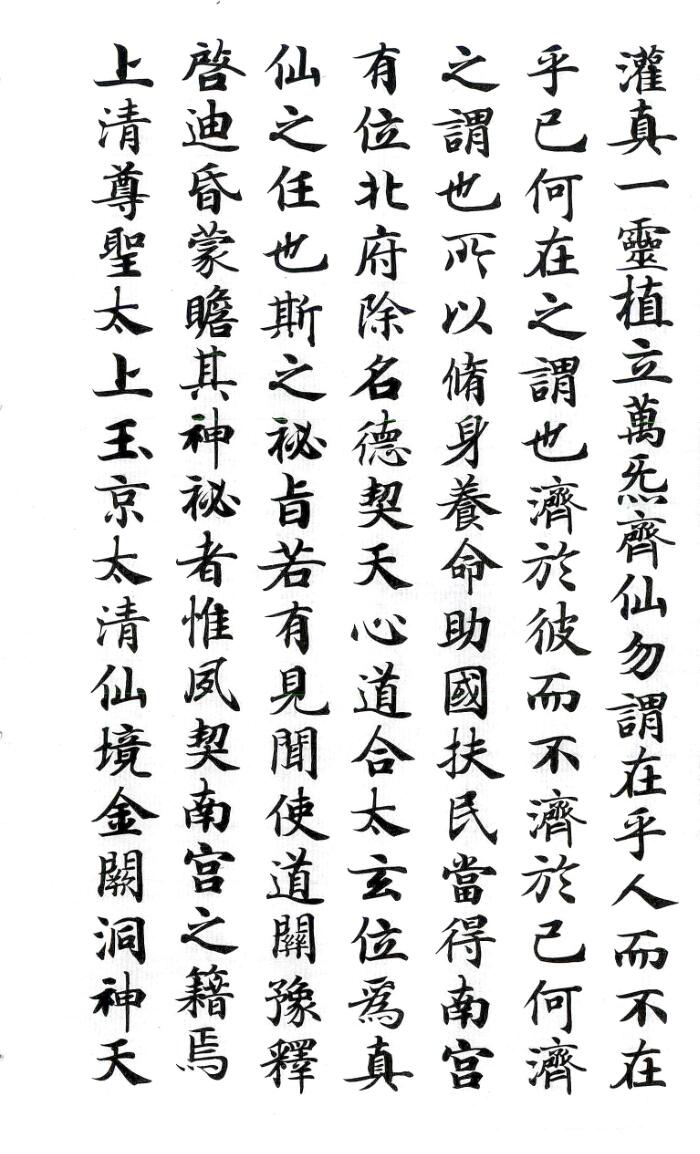 灌真一靈植立萬炁齊仙勿謂在乎人而不在
乎已何在之謂也濟於彼而不濟於己何濟
之謂也所以脩身養命助國扶民當得南宮
有位北府除名德契天心道合太玄位爲真
仙之任也斯之祕旨若有見聞使道關豫釋
啓迪昏蒙瞻其神祕者惟夙契南宮之籍焉
上清尊聖太上玉京太清仙境金闕洞神天